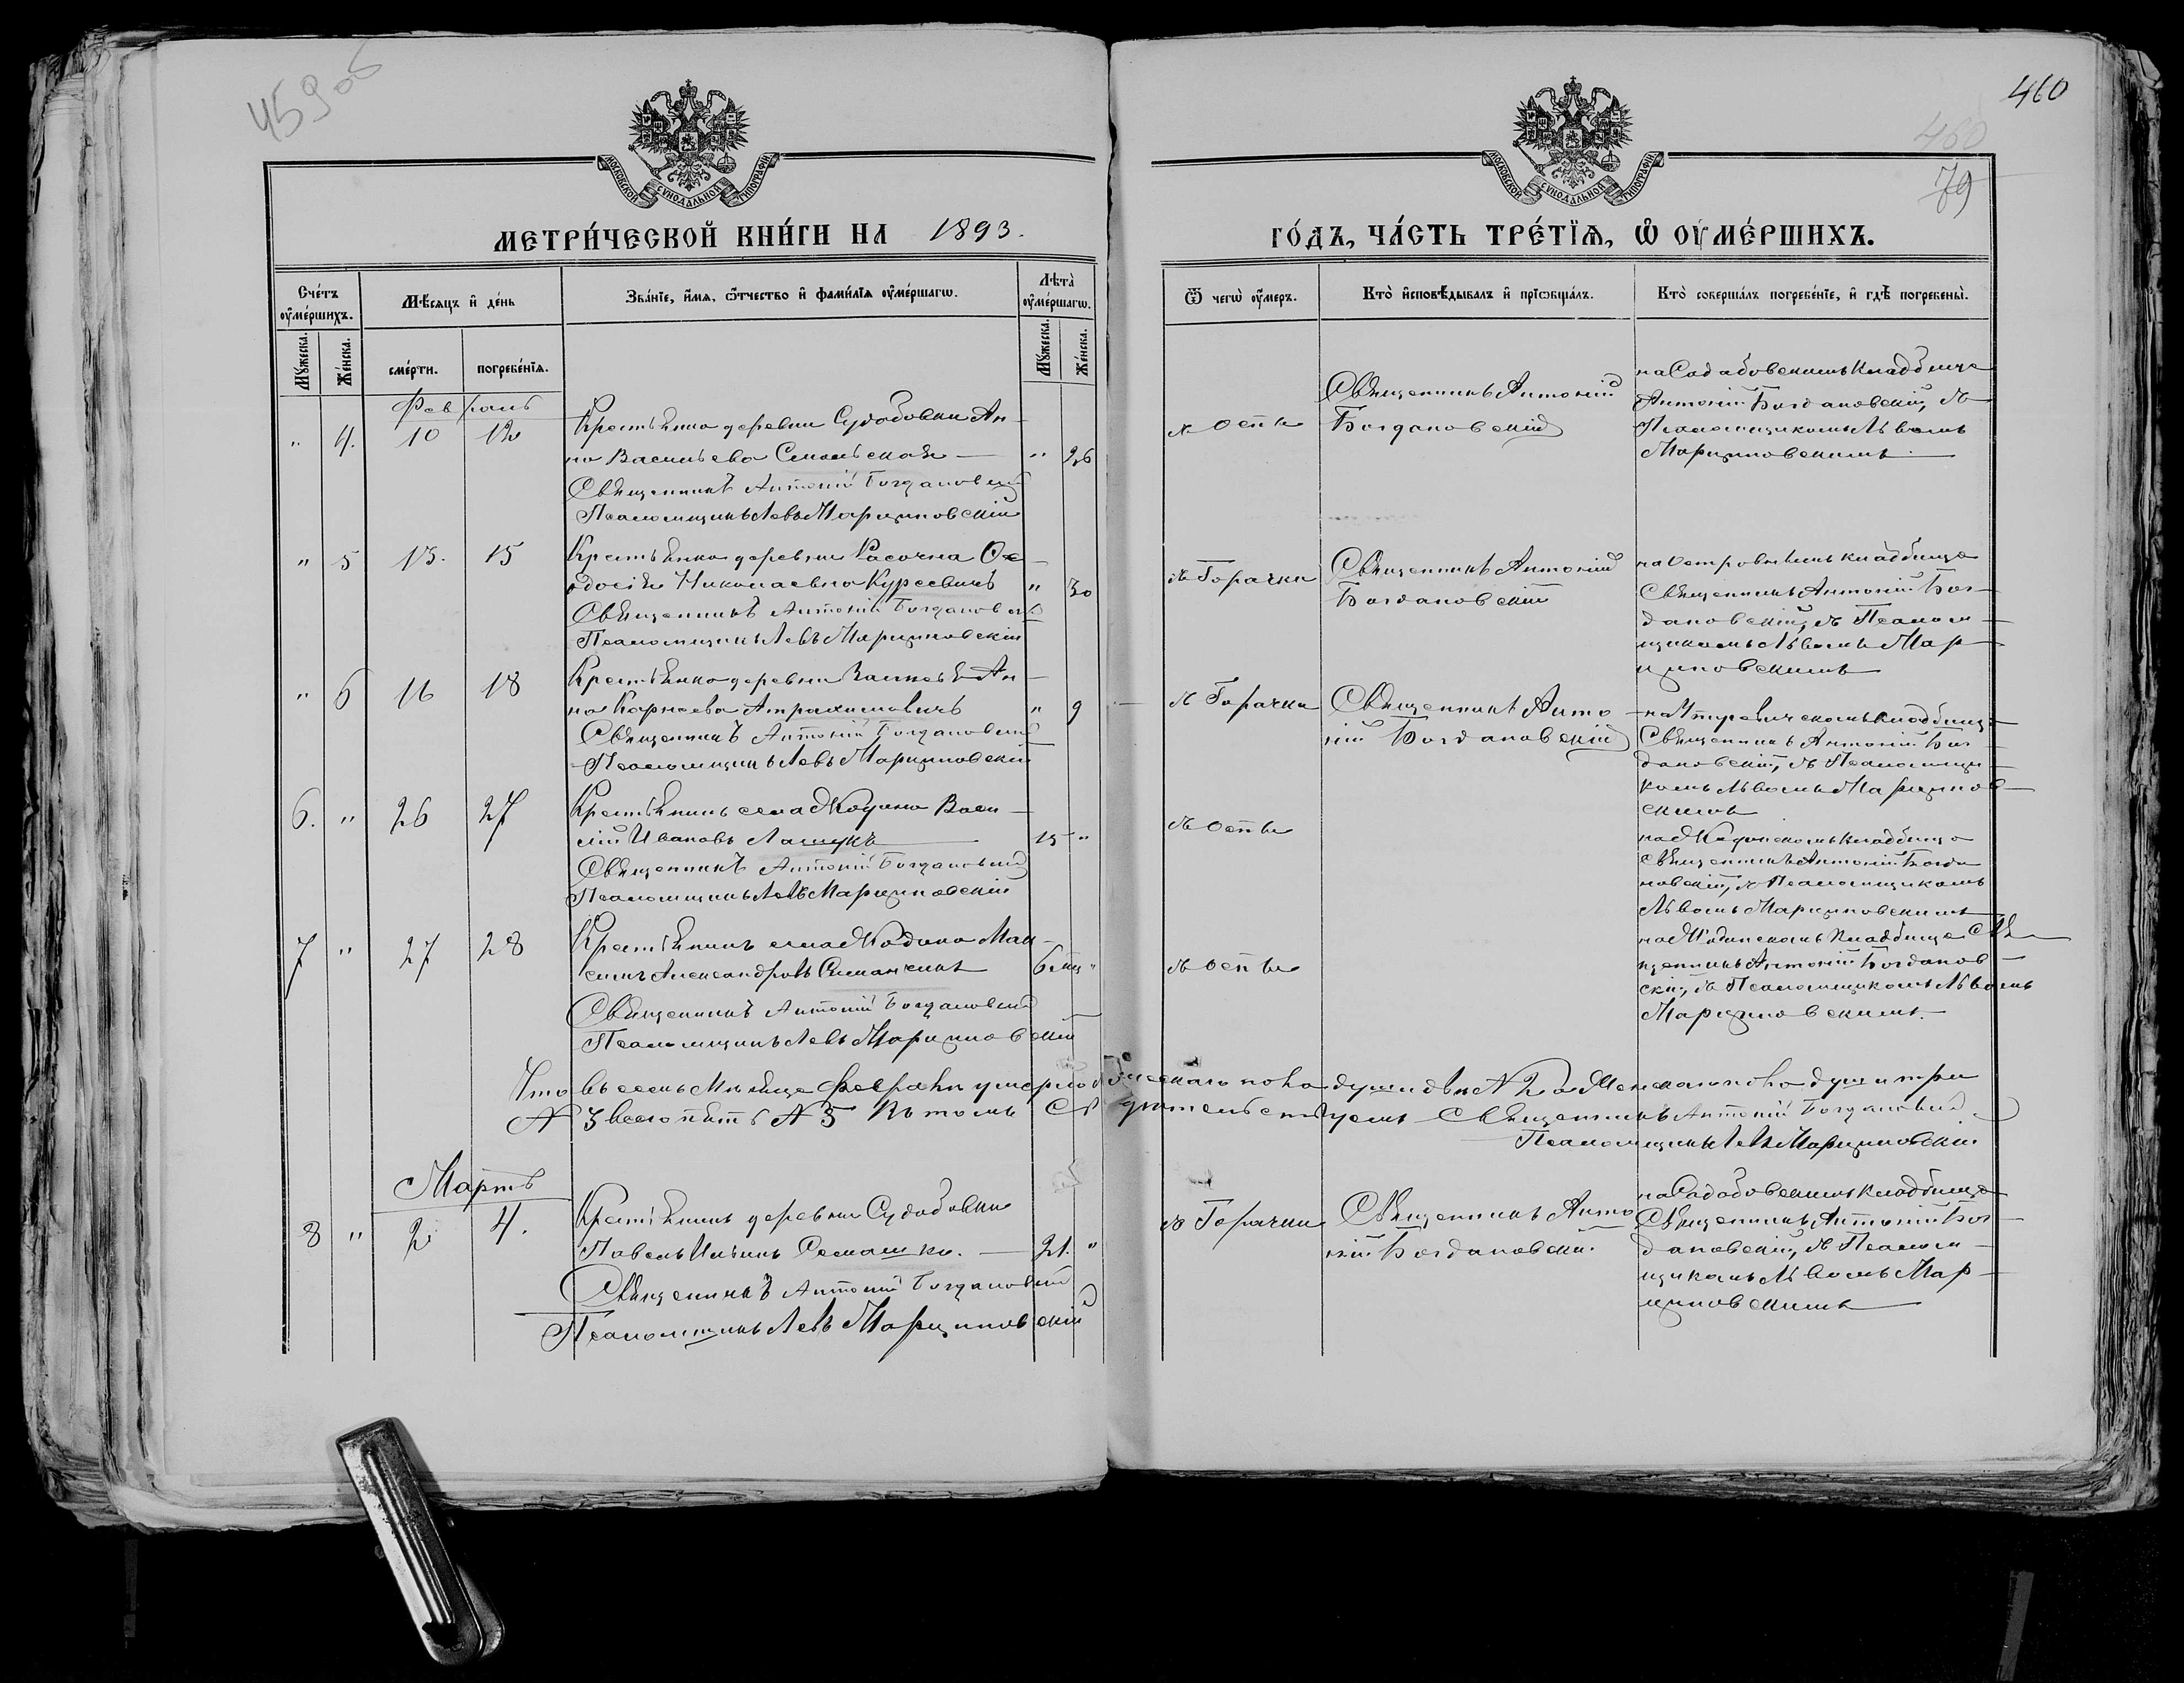 459 об
460
460
79
МОСКОВСКОЙ СѴНОДАЛЬНОЙ ТИПОГРАФІИ
МОСКОВСКОЙ СѴНОДАЛЬНОЙ ТИПОГРАФІИ
МЕТРИ́ЧЕСКОЙ КНИ́ГИ НА 1893.
ГО́ДЪ, ЧА́СТЬ ТРЕ́ТЇѦ, Ѡ ОУМЕ́РШИХЪ.
Сче́тъ оуме́ршихъ.
Мѣ́сяцъ и де́нь
Зва́нїе, и́мя, ѿтчество и фами́лїя оуме́ршагѡ.
Лѣта̀ оуме́ршагѡ.
Мꙋ́жеска.
Же́нска.
сме́рти.
погребе́нїя.
Мꙋ́жеска.
Же́нска.
Ѿ чегѡ̀ оу́меръ.
Кто̀ и҆сповѣ́дывалъ и҆ прїѡбща́лъ.
Кто̀ соверша́лъ погребе́нїе, и҆ гдѣ̀ погребены̀.
Февраль
" 4. 10 12
Крестьянка деревни Судобовки Ан-
на Васильева " 26
Священникъ Антоній Богдановскій
Псаломщикъ Левъ Марциновскій
Оспы
Священникъ Антоній
Богдановскій
кладбище
Антоній Богдановскій, съ
Псаломщикомъ Львомъ
Марциновскимъ
" 5 13. 15
Крестьянка деревни Ѳе-
одосія Николаевна Курсевичъ " 30
Священникъ Антоній Богдановскій
Псаломщикъ Левъ Марциновскій
Горячки
Священникъ Антоній
Богдановскій
кладбище
Священникъ Антоній Бог-
дановскій, съ Псалом-
щикомъ Львомъ Мар-
циновскимъ
" 6 16 18
Крестьянка деревни Ан-
на Карпова " 9
Священникъ Антоній Богдановскій
Псаломщикъ Левъ Марциновскій
Горячки
Священникъ Анто
ній Богдановскій
кладбище
Священникъ Антоній Бог-
дановскій, съ Псаломщи-
комъ Львомъ Марцинов-
скимъ
6. " 26 27
Крестьянинъ села Жодина Васи-
лій Ивановъ Лашукъ 15 "
Священникъ Антоній Богдановскій
Псаломщикъ Левъ Марциновскій
Оспы
на Жодинскомъ кладбище
Священникъ Антоній Богда
новскій, съ Псаломщикомъ
Львомъ Марциновскимъ
7 " 27 28
Крестьянинъ села Жодина Мак-
симъ Александровъ 6 "
Священникъ Антоній Богдановскій
Псаломщикъ Левъ Марциновскій
Оспы
на Жодинскомъ кладбище Свя-
щенникъ Антоній Богданов-
скій, съ Псаломщикомъ Львомъ
Марциновскимъ.
Что въ семъ Мѣсяце Февраль умерло мужескаго пола души двѣ № 2 а Женскаго пола души три
№ 3 всего пять № 5 въ томъ Свидѣтельствуемъ Священникъ Антоній Богдановскій
Псаломщикъ Левъ Марциновскій
Мартъ
8 " 2 4.
Крестьянинъ деревни Судобовки
Павелъ Ильинъ Семашко. 21. "
Священникъ Антоній Богдановскій
Псаломщикъ Левъ Марциновскій
Горячки
Священникъ Анто
ній Богдановскій
кладбище
Священникъ Антоній Бог-
дановскій, съ Псалом-
щикомъ Львомъ Мар-
циновскимъ